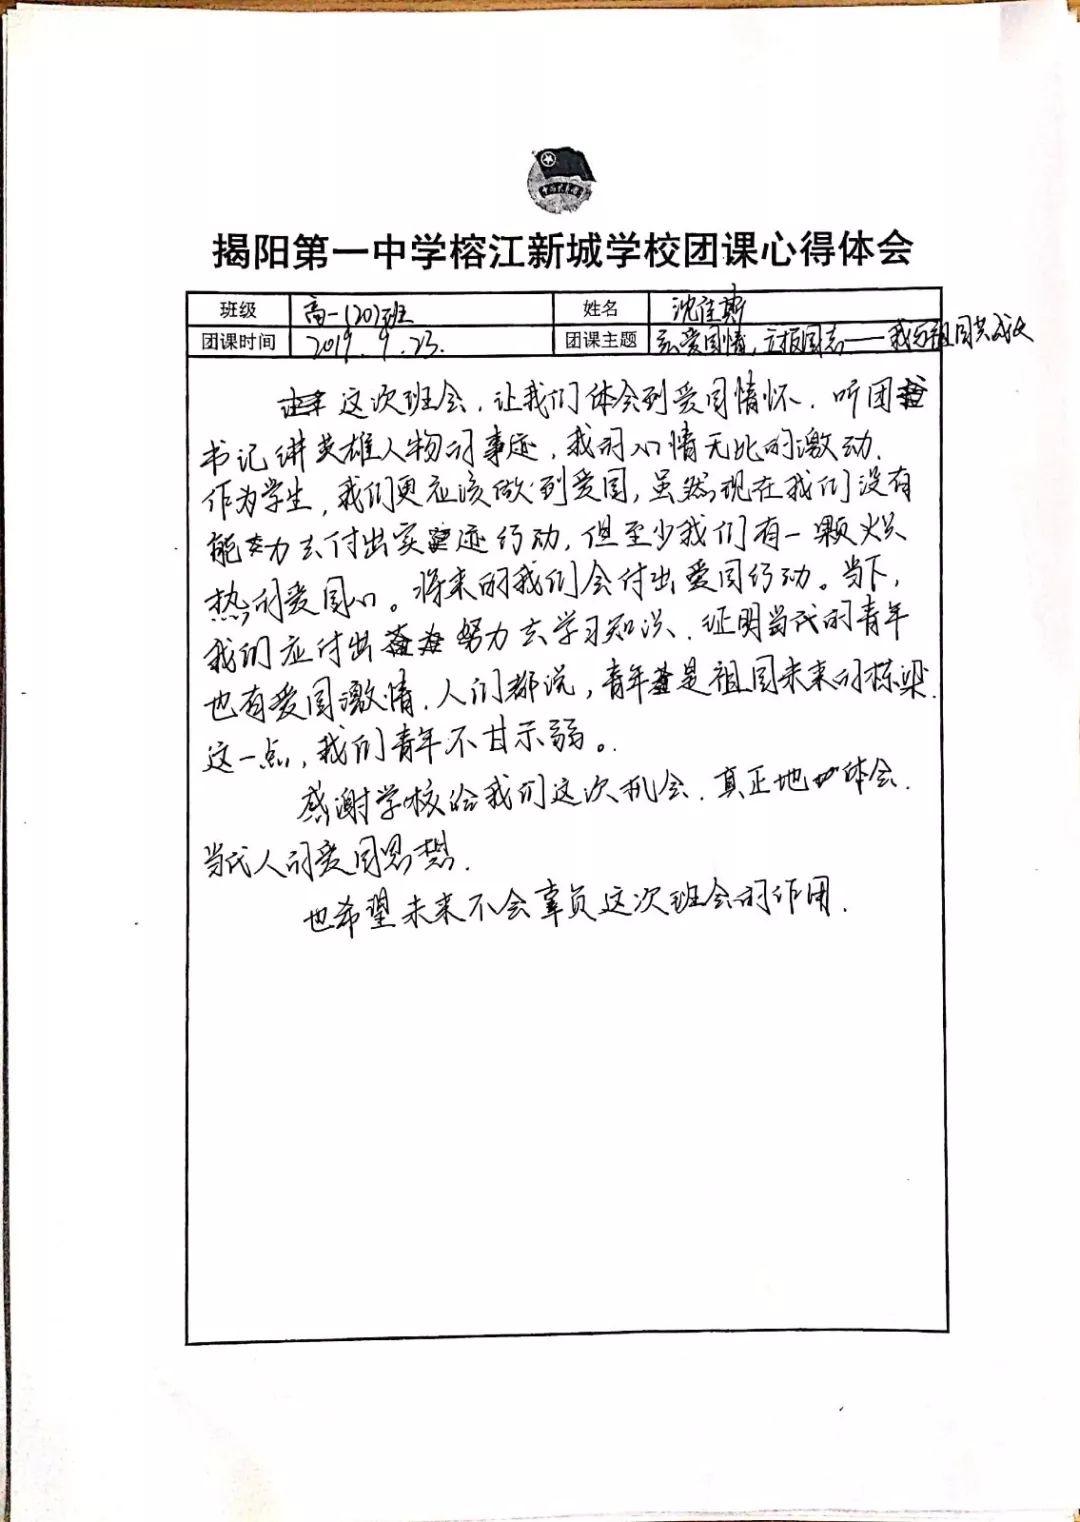 揭阳第一中学榕江新城学校团课心得体会
班级 高一(20)班 姓名 沈佳
团课时间 2019.9.23. 团课主题 爱国情,立报国志——我与祖国共成长
这次班会,让我们体会到爱国情怀.听团
书记讲英雄人物的事迹,我的心情无比的激动.
作为学生,我们更应该做到爱国,虽然现在我们没有
能力去付出实迹行动,但至少我们有一颗火
热的爱国心。将来的我们会付出爱国行动。当下,
我们应付出努力去学习知识.证明当代的青年
也有爱国激情.人们都说,青年是祖国未来的栋梁.
这一点,我们青年不甘示弱。
感谢学校给我们这次机会.真正地体会.
当代人的爱国思想.
也希望未来不会辜负这次班会的作用.